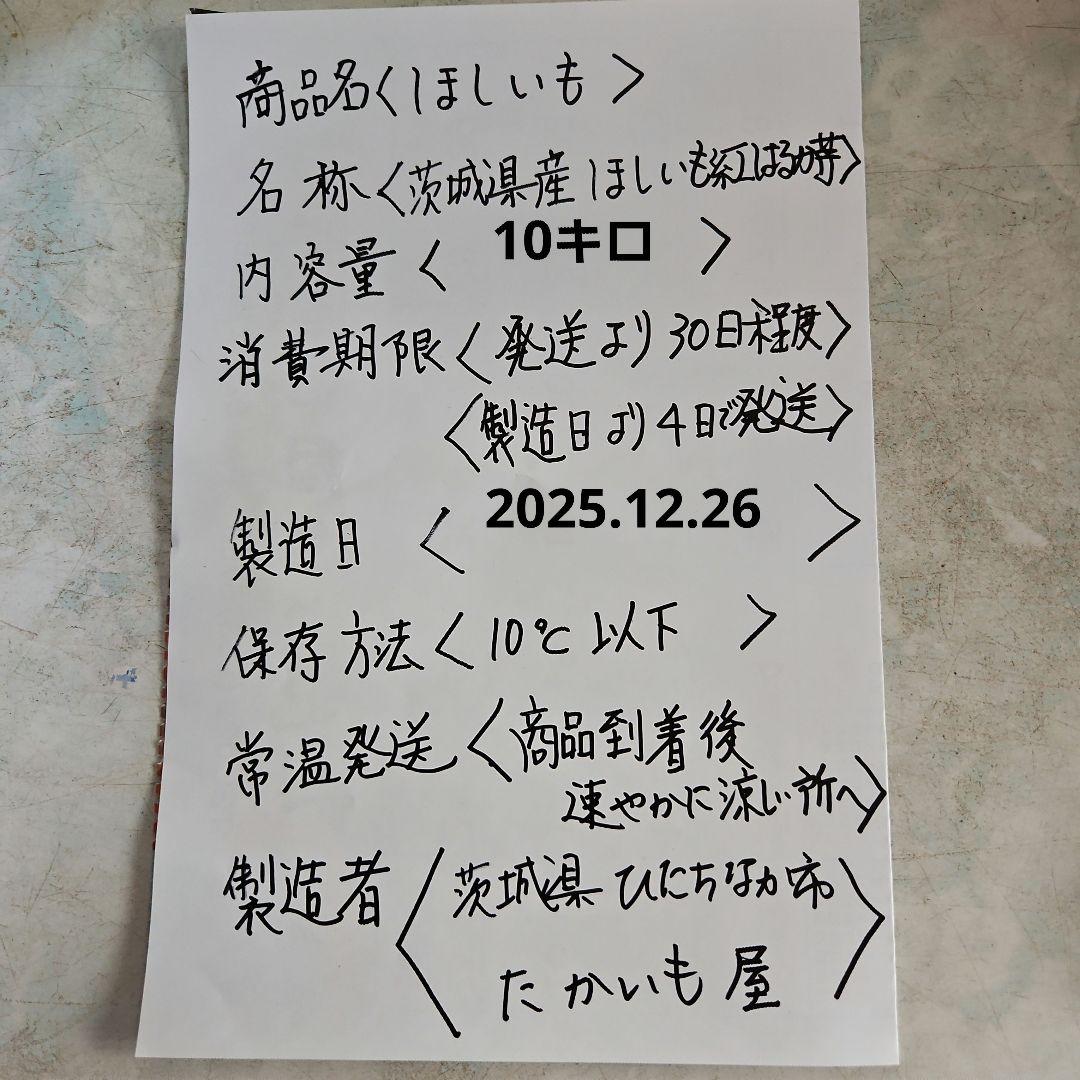 商品名〈ほしいも〉
名称〈茨城県産ほしいも紅はるか芋〉
内容量〈10キロ〉
消費期限〈発送より30日程度〉
〈製造日より4日で発送〉
製造日〈2025.12.26〉
保存方法〈10℃以下〉
常温発送〈商品到着後
速やかに涼しい所へ〉
製造者〈茨城県ひたちなか市
たかいも屋〉